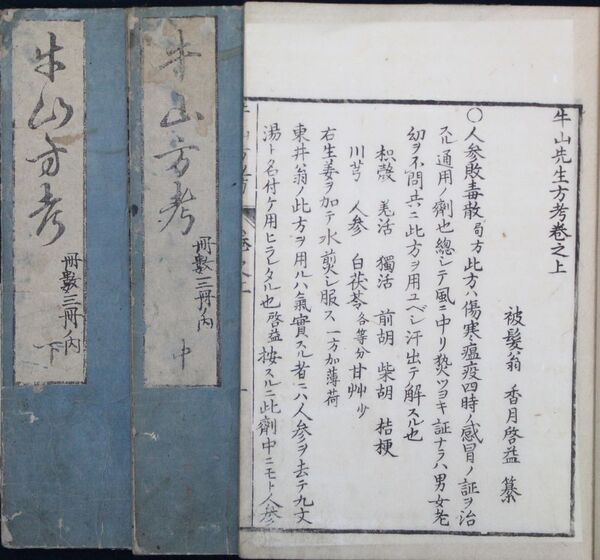 牛山先生方考巻之上
被髮翁 香月啓益 纂
〇人参敗毒散局方此方ハ傷寒瘟疫四時ノ感冒ノ証ヲ治
スル通用ノ劑也總シテ風ニ中リ熱ツヨキ証ナラハ男女老
幼ヲ不問共ニ此方ヲ用ユベシ汗出テ解スル也
枳殻 羌活 獨活 前胡 柴胡 桔梗
川芎 人参 白茯苓各等分甘艸少
右生姜ヲ加テ水煎シ服ス一方加薄荷
東井翁ノ此方ヲ用ルハ氣實スル者ニハ人参ヲ去テ九丈
湯ト名付ケ用ヒラレタル也啓益按スルニ此劑中ニモト人参
牛山方考
冊数三冊ノ内
中
牛山方考
冊数三冊ノ内
下